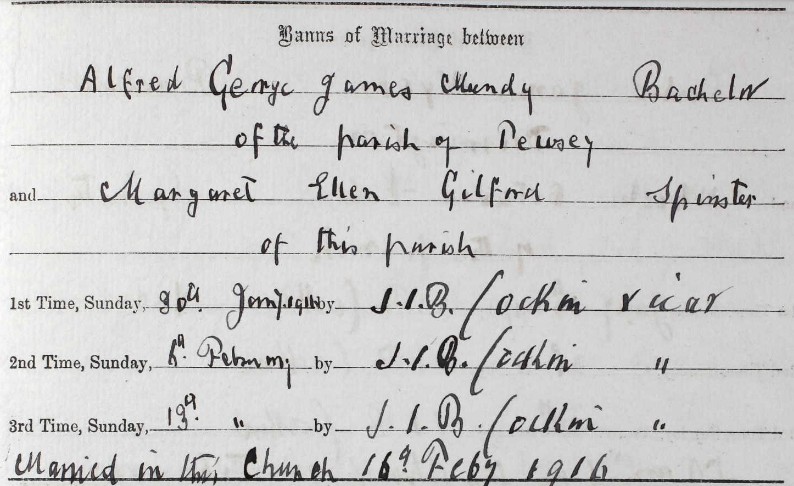 Banns of Marriage between
Alfred George James Mundy Bachelor
of the parish of Pewsey
and Margaret Ellen Gilford Spinster
of this parish
1st Time, Sunday, 30th Jany. 1916 by J. I. B. Cockin Vicar
2nd Time, Sunday, 6th February by J. I. B. Cockin "
3rd Time, Sunday, 13th " by J. I. B. Cockin "
Married in this Church 16th Feby 1916